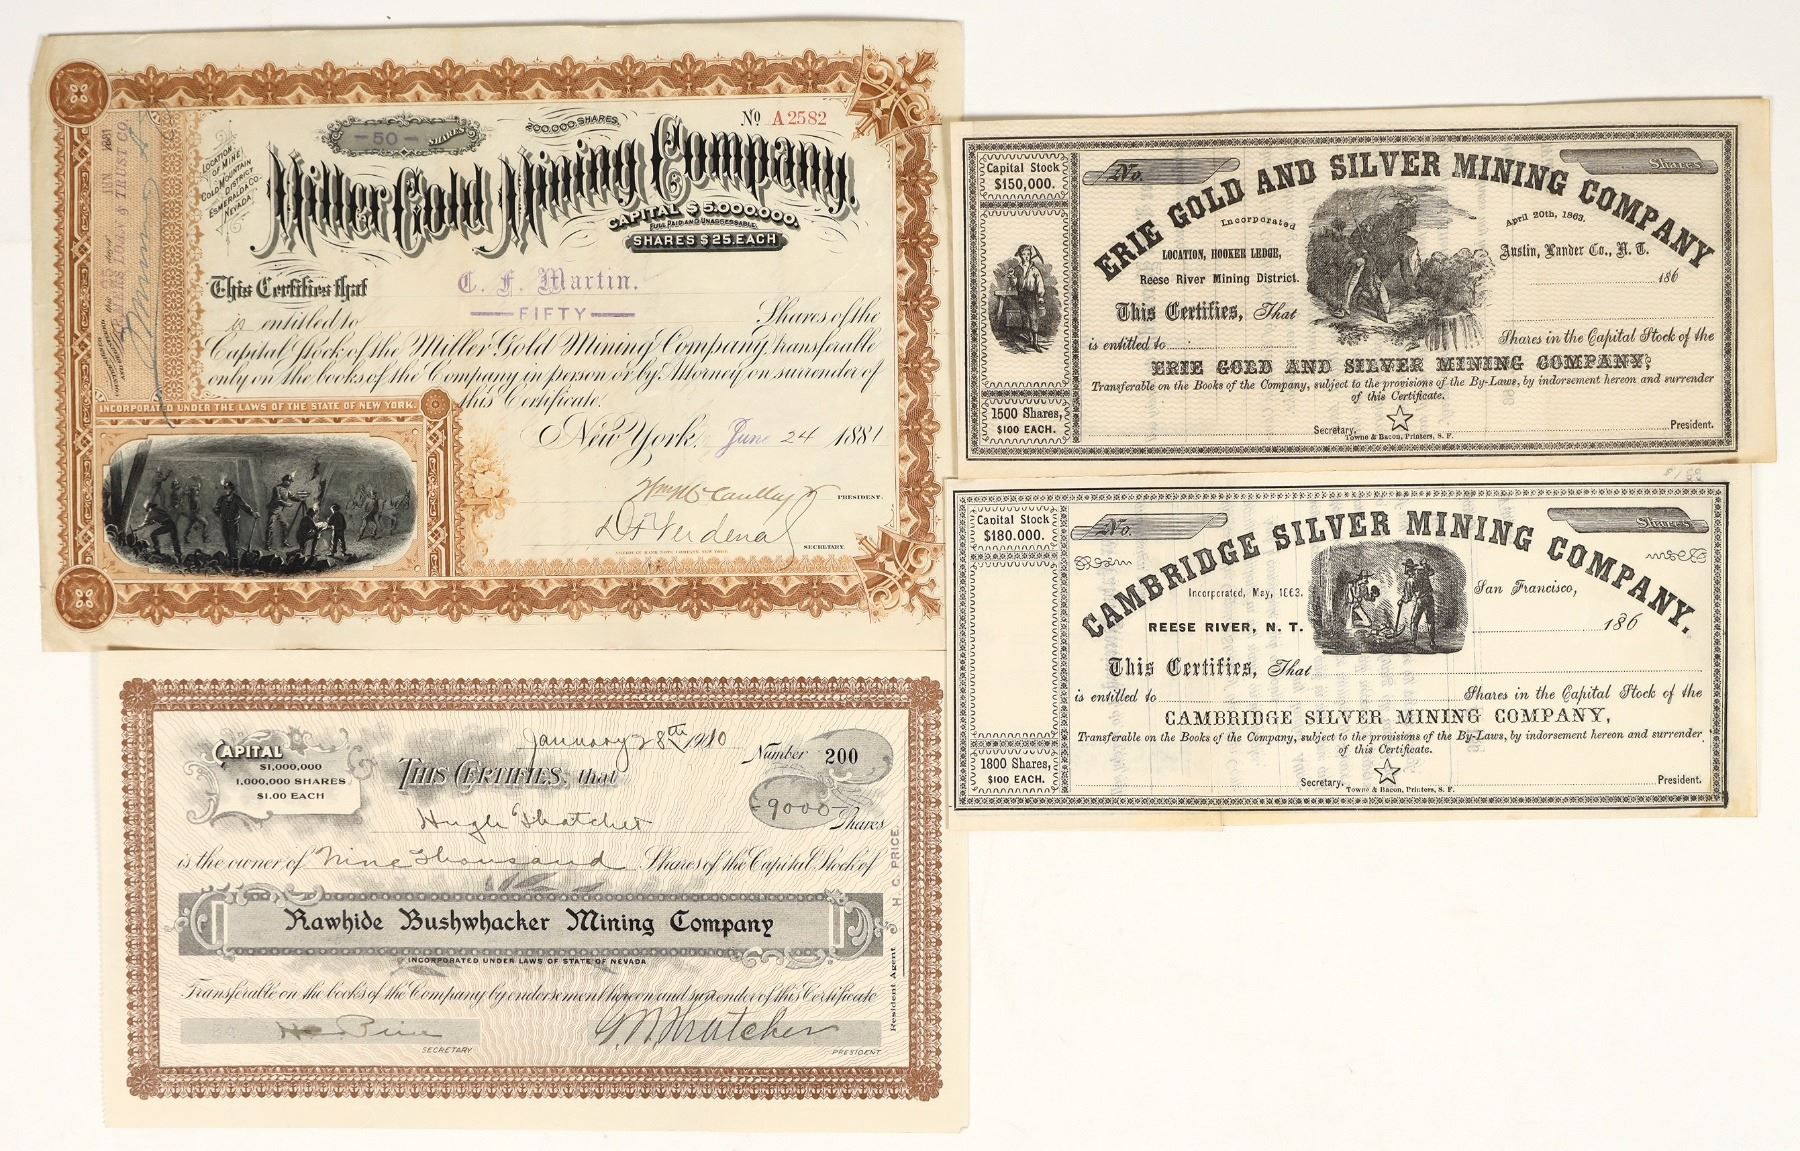 No A2582
-50- SHARES
200,000 SHARES.
LOCATION
OF MINE
GOLD MOUNTAIN
DISTRICT
ESMERALDA CO.
NEVADA
Miller Gold Mining Company.
CAPITAL $5,000,000.
FULL PAID AND UNASSESSABLE.
SHARES $25. EACH
This Certifies that C. F. Martin.
is entitled to —FIFTY— Shares of the
Capital Stock of the Miller Gold Mining Company, transferable
only on the books of the Company in person or by Attorney on surrender of
this Certificate.
New York, June 24 1881
PRESIDENT.
SECRETARY
INCORPORATED UNDER THE LAWS OF THE STATE OF NEW YORK.
1881
& TRUST CO.
Capital Stock
$150,000.
No.
Shares
ERIE GOLD AND SILVER MINING COMPANY
Incorporated April 20th, 1863.
LOCATION, HOOKER LEDGE,
Reese River Mining District.
Austin, Lander Co., N. T.
186
This Certifies, That
is entitled to Shares in the Capital Stock of the
ERIE GOLD AND SILVER MINING COMPANY,
Transferable on the Books of the Company, subject to the provisions of the By-Laws, by indorsement hereon and surrender
of this Certificate.
1500 Shares,
$100 EACH.
Secretary. President.
Towne & Bacon, Printers, S. F.
Capital Stock
$180.000.
No.
Shares
CAMBRIDGE SILVER MINING COMPANY.
Incorporated, May, 1863.
San Francisco,
REESE RIVER, N. T.
186
This Certifies, That
is entitled to Shares in the Capital Stock of the
CAMBRIDGE SILVER MINING COMPANY,
Transferable on the Books of the Company, subject to the provisions of the By-Laws, by indorsement hereon and surrender
of this Certificate.
1800 Shares,
$100 EACH.
Secretary. President.
Towne & Bacon, Printers, S. F.
January 28th 1910
CAPITAL
$1,000,000
1,000,000 SHARES
$1.00 EACH
Number 200
THIS CERTIFIES, that
Hugh Thatcher
-9000- Shares
is the owner of Nine Thousand Shares of the Capital Stock of
Rawhide Bushwhacker Mining Company
INCORPORATED UNDER LAWS OF STATE OF NEVADA
Transferable on the books of the Company by endorsement hereon and surrender of this Certificate
SECRETARY
G. N. Thatcher
PRESIDENT
Resident Agent H. C. PRICE.